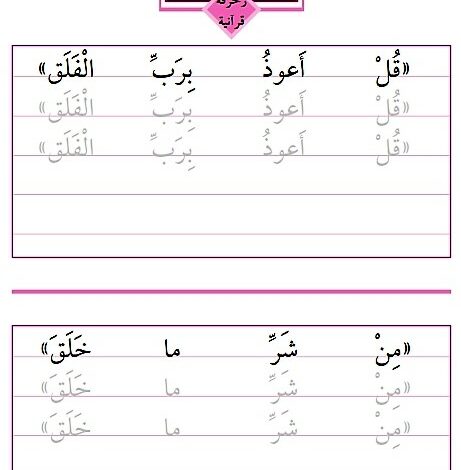 زخرفة
قرآنية
«قُلْ أَعوذُ بِرَبِّ الْفَلَق»
«قُلْ أَعوذُ بِرَبِّ الْفَلَق»
«قُلْ أَعوذُ بِرَبِّ الْفَلَق»
«مِنْ شَرِّ ما خَلَقَ»
«مِنْ شَرِّ ما خَلَقَ»
«مِنْ شَرِّ ما خَلَقَ»